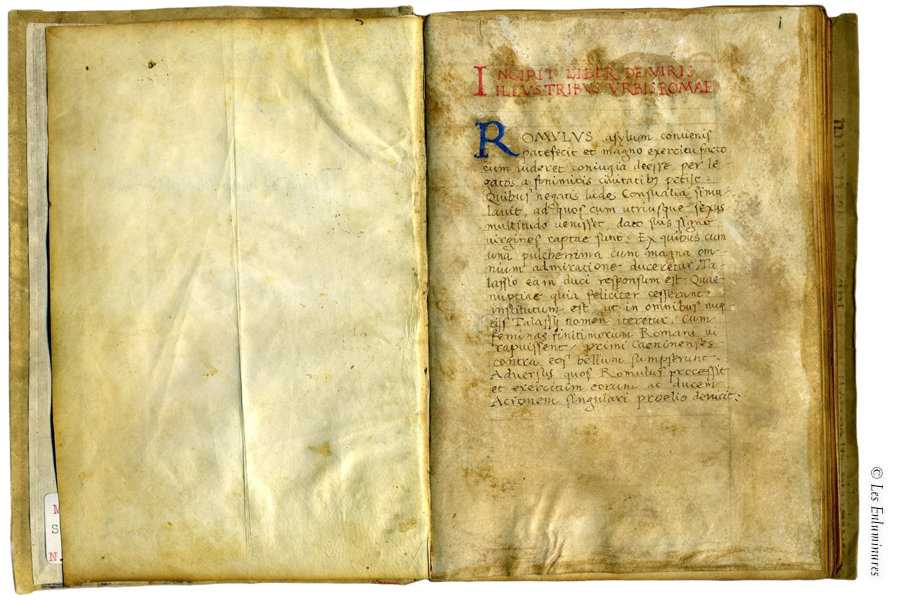 M
S
N.
1
INCIPIT LIBER DE VIRIS
ILLVSTRIBVS VRBIS ROMAE
ROMVLVS asylum convenis
patefecit et magno exercitu facto
cum uideret coniugia deesse, per le
gatos a finitimis ciuitatibꝫ petijt.
Quibus negatis ludos Consualia simu
lauit, ad quos cum utriusque sexus
multitudo uenisset, dato suis signo
uirgines raptae sunt. Ex quibus cum
una pulcherrima cum magna om
nium admiratione duceretur, Ta
lassio eam duci responsum est. Quae
nuptiae quia feliciter cesserant
institutum est, ut in omnibus nup
tijs Talassij nomen iteretur. Cum
feminas finitimorum Romani ui
rapuissent, primi Caeninenses
contra eos bellum sumpserunt.
Aduersus quos Romulus processit
et exercitum eorum ac ducem
Acronem singulari proelio deuicit:
© Les Enluminures